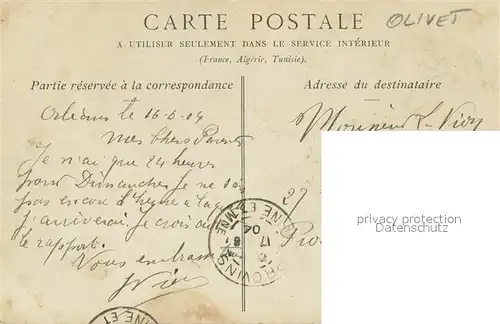 CARTE POSTALE
OLIVET
A UTILISER SEULEMENT DANS LE SERVICE INTÉRIEUR
(France, Algérie, Tunisie).
Partie réservée à la correspondance
Adresse du destinataire
Orléans le 16-6-04
Mes Chers Parents
Je n'ai que 24 heures
pour Dimanche, Je ne sais
pas encore l'heure à laquelle
j'arriverai. Je crois
le rapport.
Vous embrasse
Monsieur L. Viox
27
Pro
PROVINS
SEINE ET MNE
17
04
privacy protection
Datenschutz